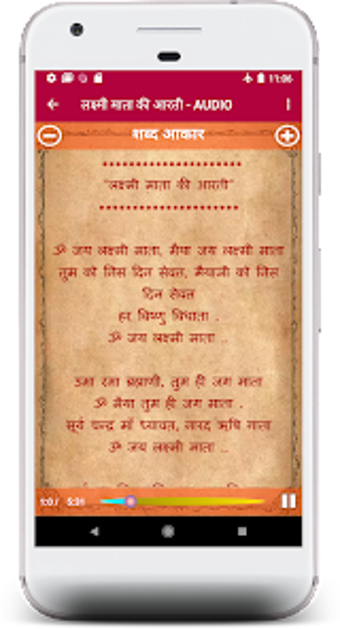 11:06
लक्ष्मी माता की आरती - AUDIO
शब्द आकार
********************
"लक्ष्मी माता की आरती"
********************
ॐ जय लक्ष्मी माता, मैया जय लक्ष्मी माता
तुम को निस दिन सेवत, मैयाजी को निस
दिन सेवत
हर विष्णु विधाता .
ॐ जय लक्ष्मी माता ..
उमा रमा ब्रह्माणी, तुम ही जग माता
ॐ मैया तुम ही जग माता .
सूर्य चन्द्र माँ ध्यावत, नारद ऋषि गाता
ॐ जय लक्ष्मी माता ..
5:31